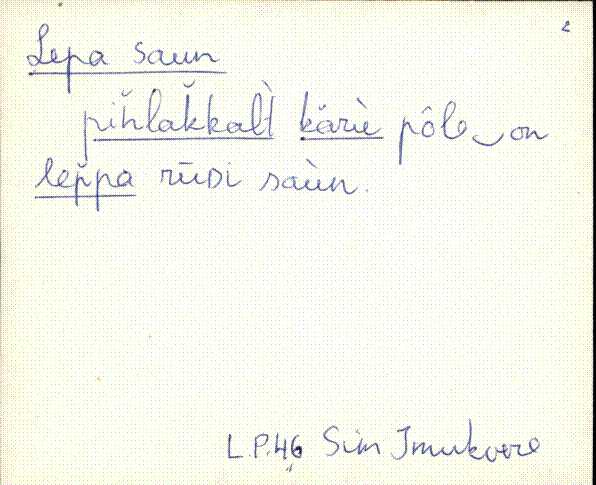 Lepa saun
pih̆lak̆kalt̀ kärìe pôle‿on
lep̆pa rūᴅi saùn.
L.P.46 Sim Imukvere